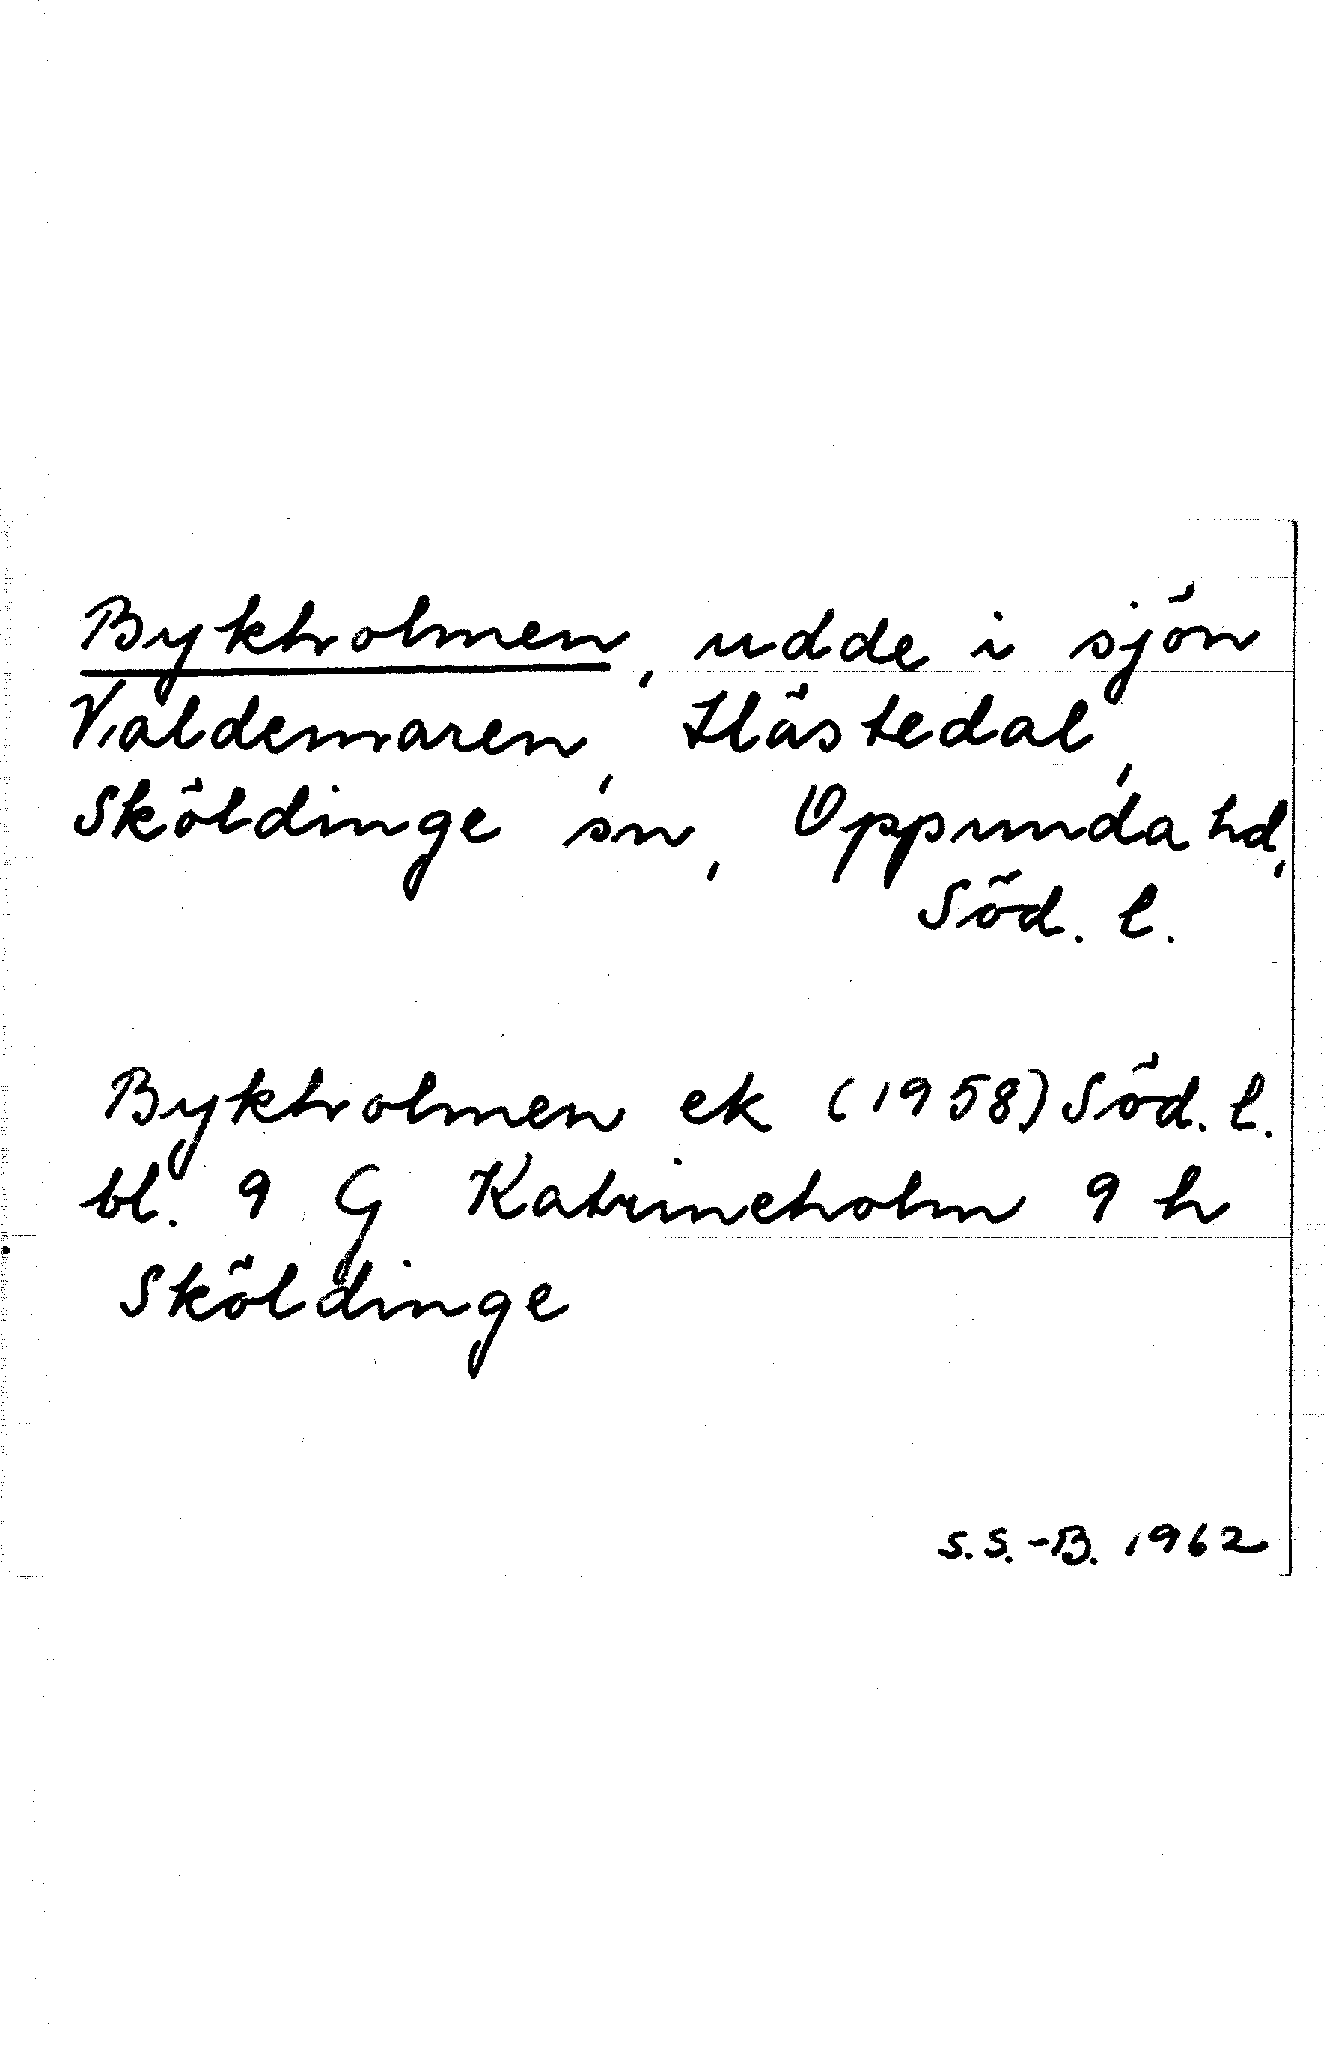 Bykholmen, udde i sjön
Valdemaren, Hästedal,
Sköldinge sn, Oppunda hd,
Söd. l.
Bykholmen ek (1958) Söd. l.
bl. 9 G Katrineholm 9 h
Sköldinge
S.S.-B. 1962